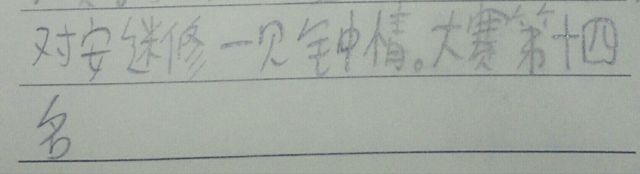 对安迷修一见钟情。大赛第十四
名